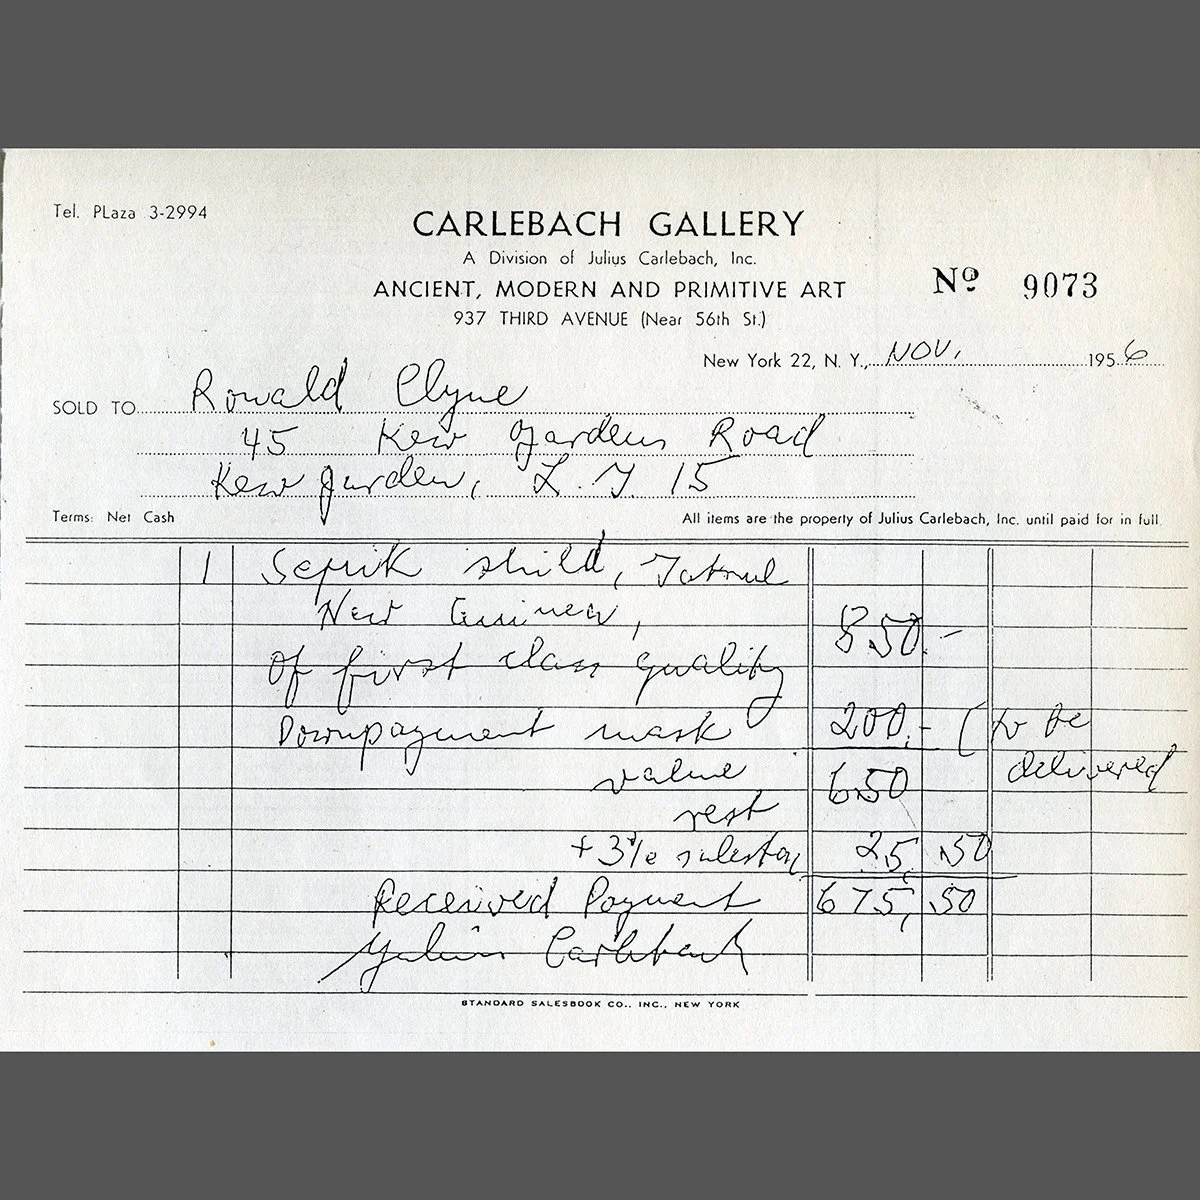 Tel. PLaza 3-2994
CARLEBACH GALLERY
A Division of Julius Carlebach, Inc.
ANCIENT, MODERN AND PRIMITIVE ART
937 THIRD AVENUE (Near 56th St.)
Nº 9073
New York 22, N. Y., Nov. 1956
SOLD TO Ronald Clyne
45 Kew Gardens Road
Kew Garden, L. I. 15
Terms: Net Cash All items are the property of Julius Carlebach, Inc. until paid for in full.
1 Sepik shild, Iatmul
New Guinea, 850.-
of first class quality
Downpayment mask 200.- (to be
value 650 delivered
rest
+ 3% salestax 25, .50
Received Payment 675, .50
Julius Carlebach
STANDARD SALESBOOK CO., INC., NEW YORK